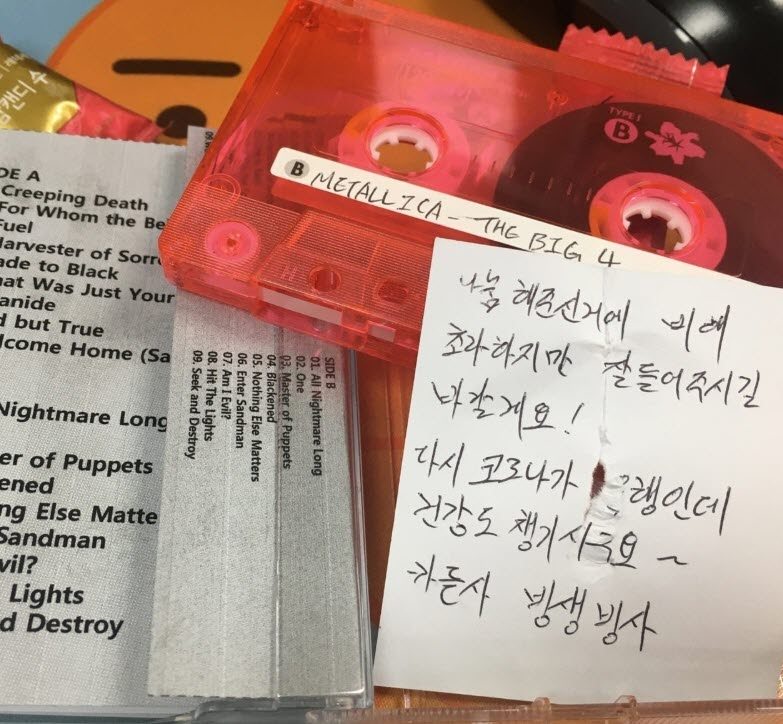 캔디 수
DE A
Creeping Death
For Whom the Be
Fuel
Harvester of Sorr
ade to Black
hat Was Just Your
anide
d but True
lcome Home (Sa
Nightmare Long
er of Puppets
ened
ng Else Matte
Sandman
vil?
Lights
d Destroy
SIDE B
01. All Nightmare Long
02. One
03. Master of Puppets
04. Blackened
05. Nothing Else Matters
06. Enter Sandman
07. Am I Evil?
08. Hit The Lights
09. Seek and Destroy
TYPE I
B
B METALLICA - THE BIG 4
나눔 해준신거에 비해
초라하지만 잘들어주시길
바랄게요!
다시 코로나가 행인데
건강도 챙기시구요 ~
카든사 빙생빙사